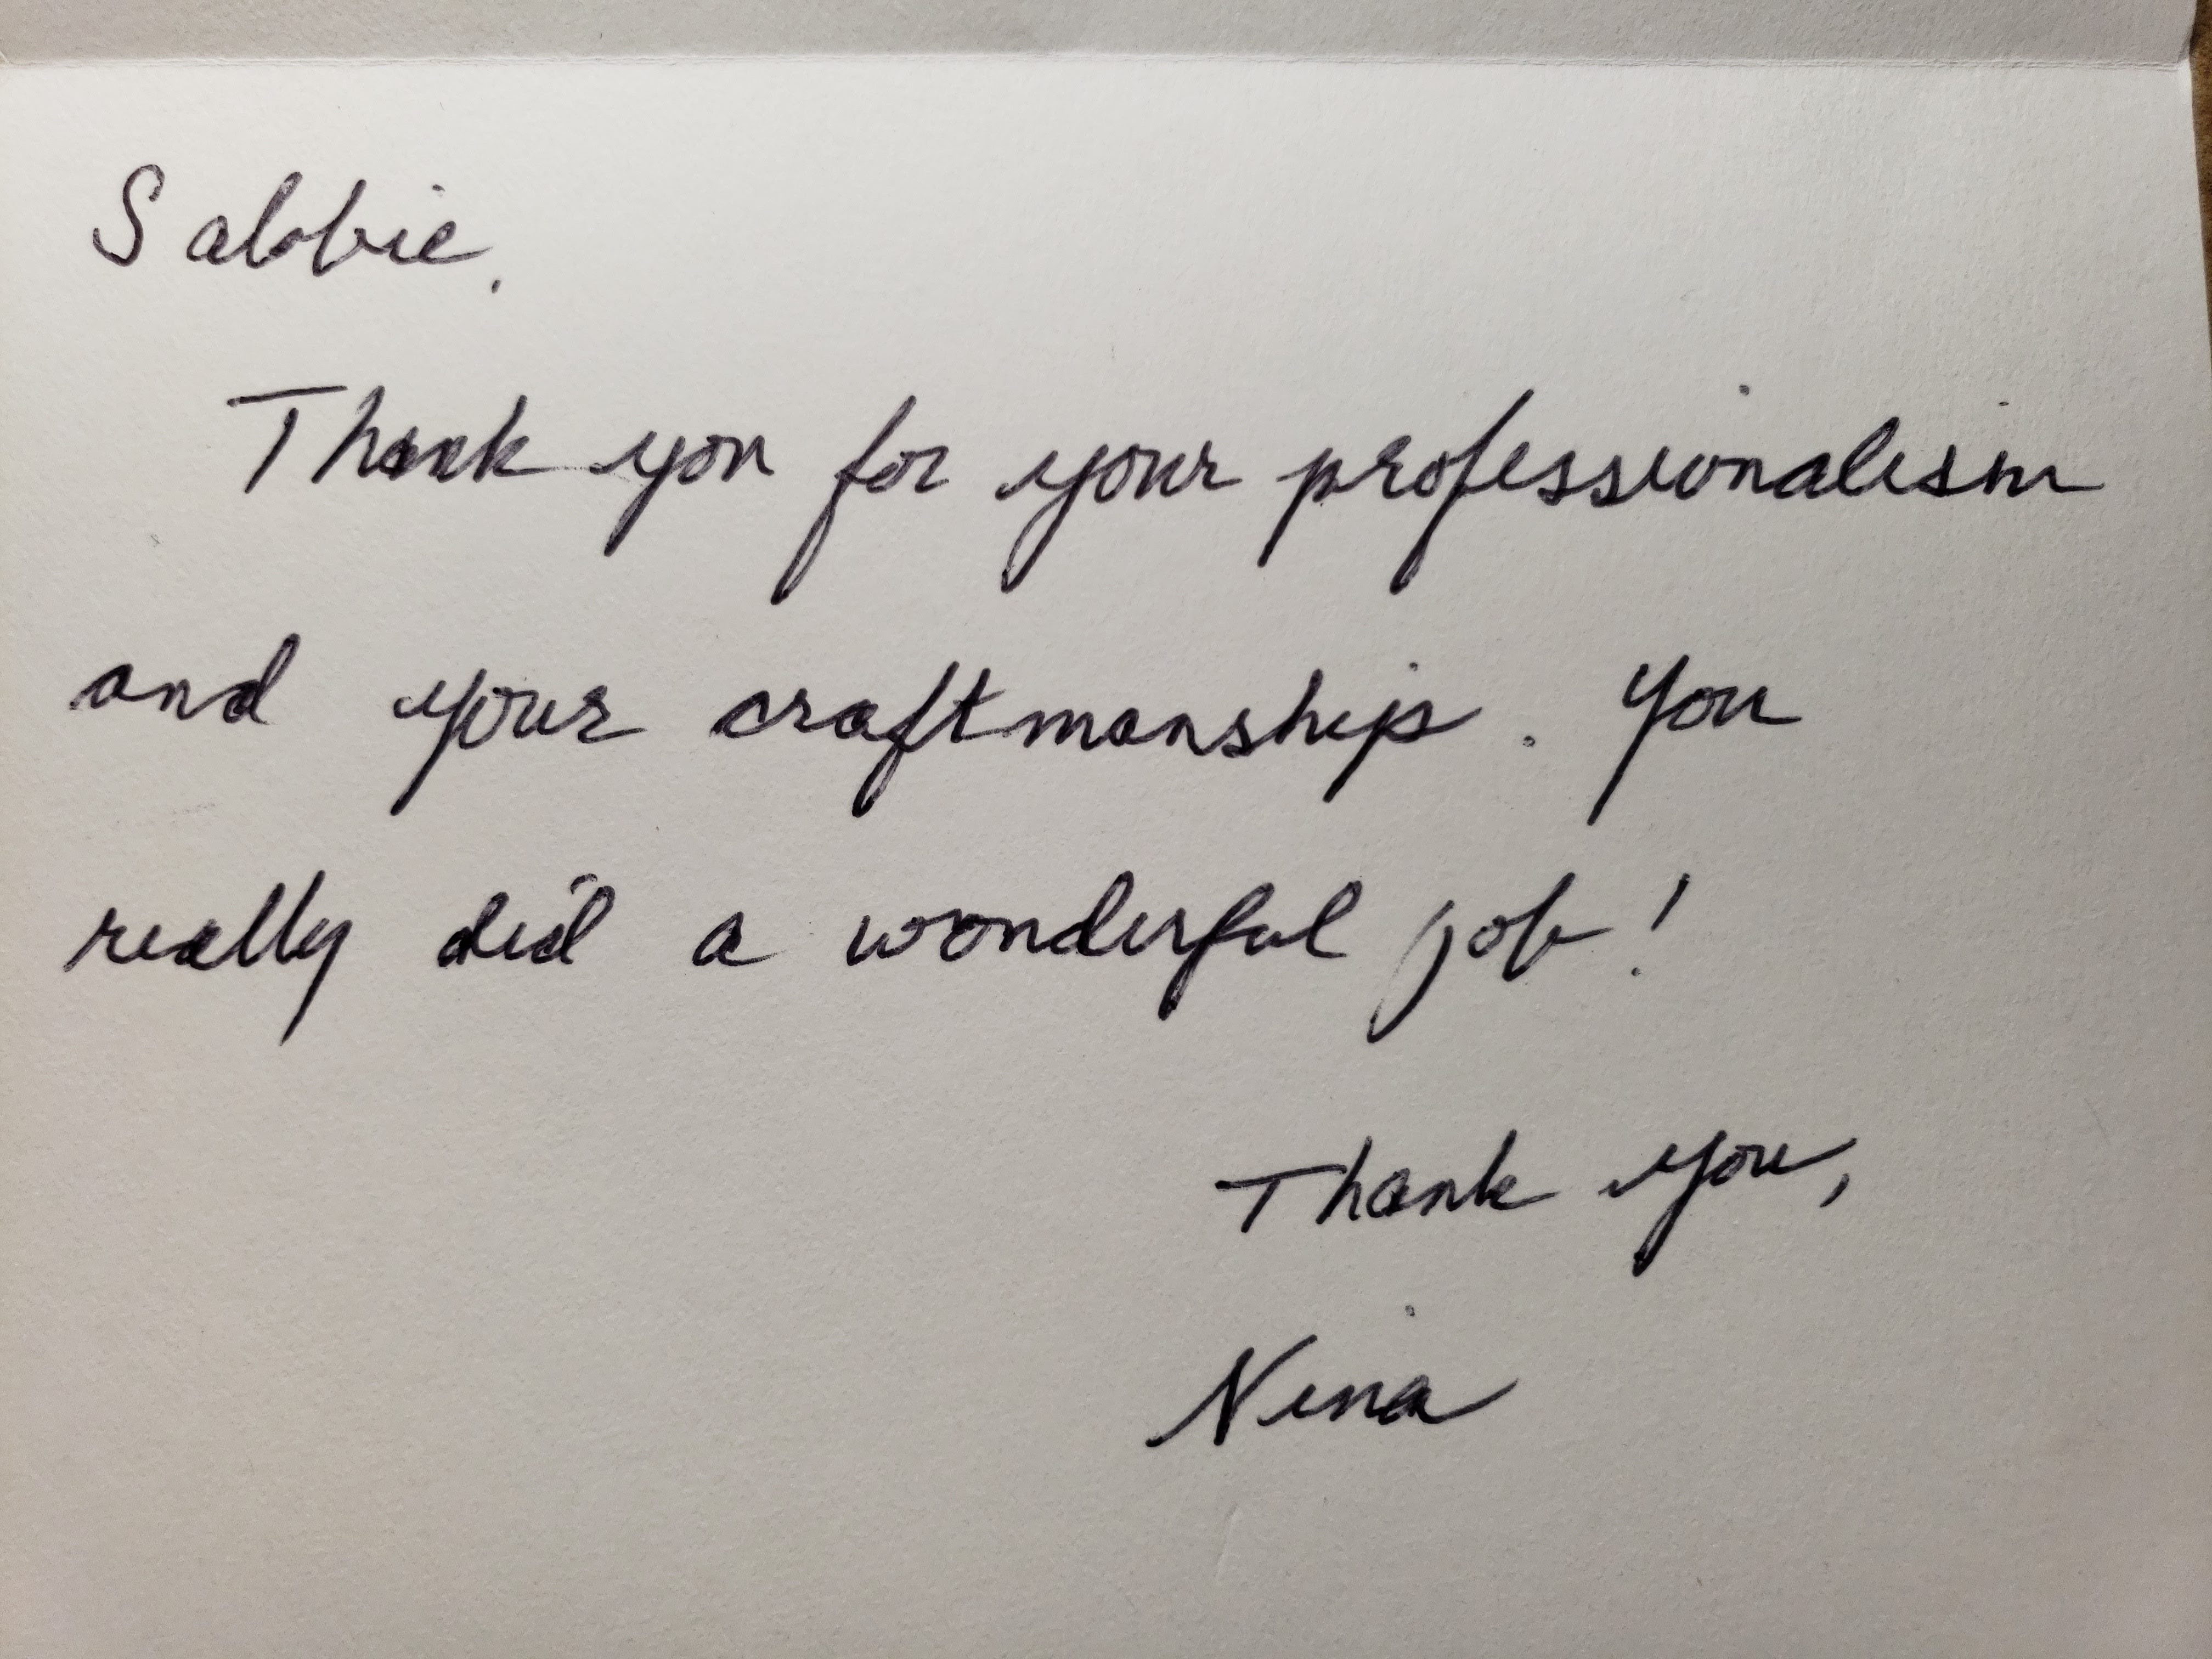 Sabbie,
Thank you for your professionalism
and your craftmanship. You
really did a wonderful job!
Thank you,
Nina